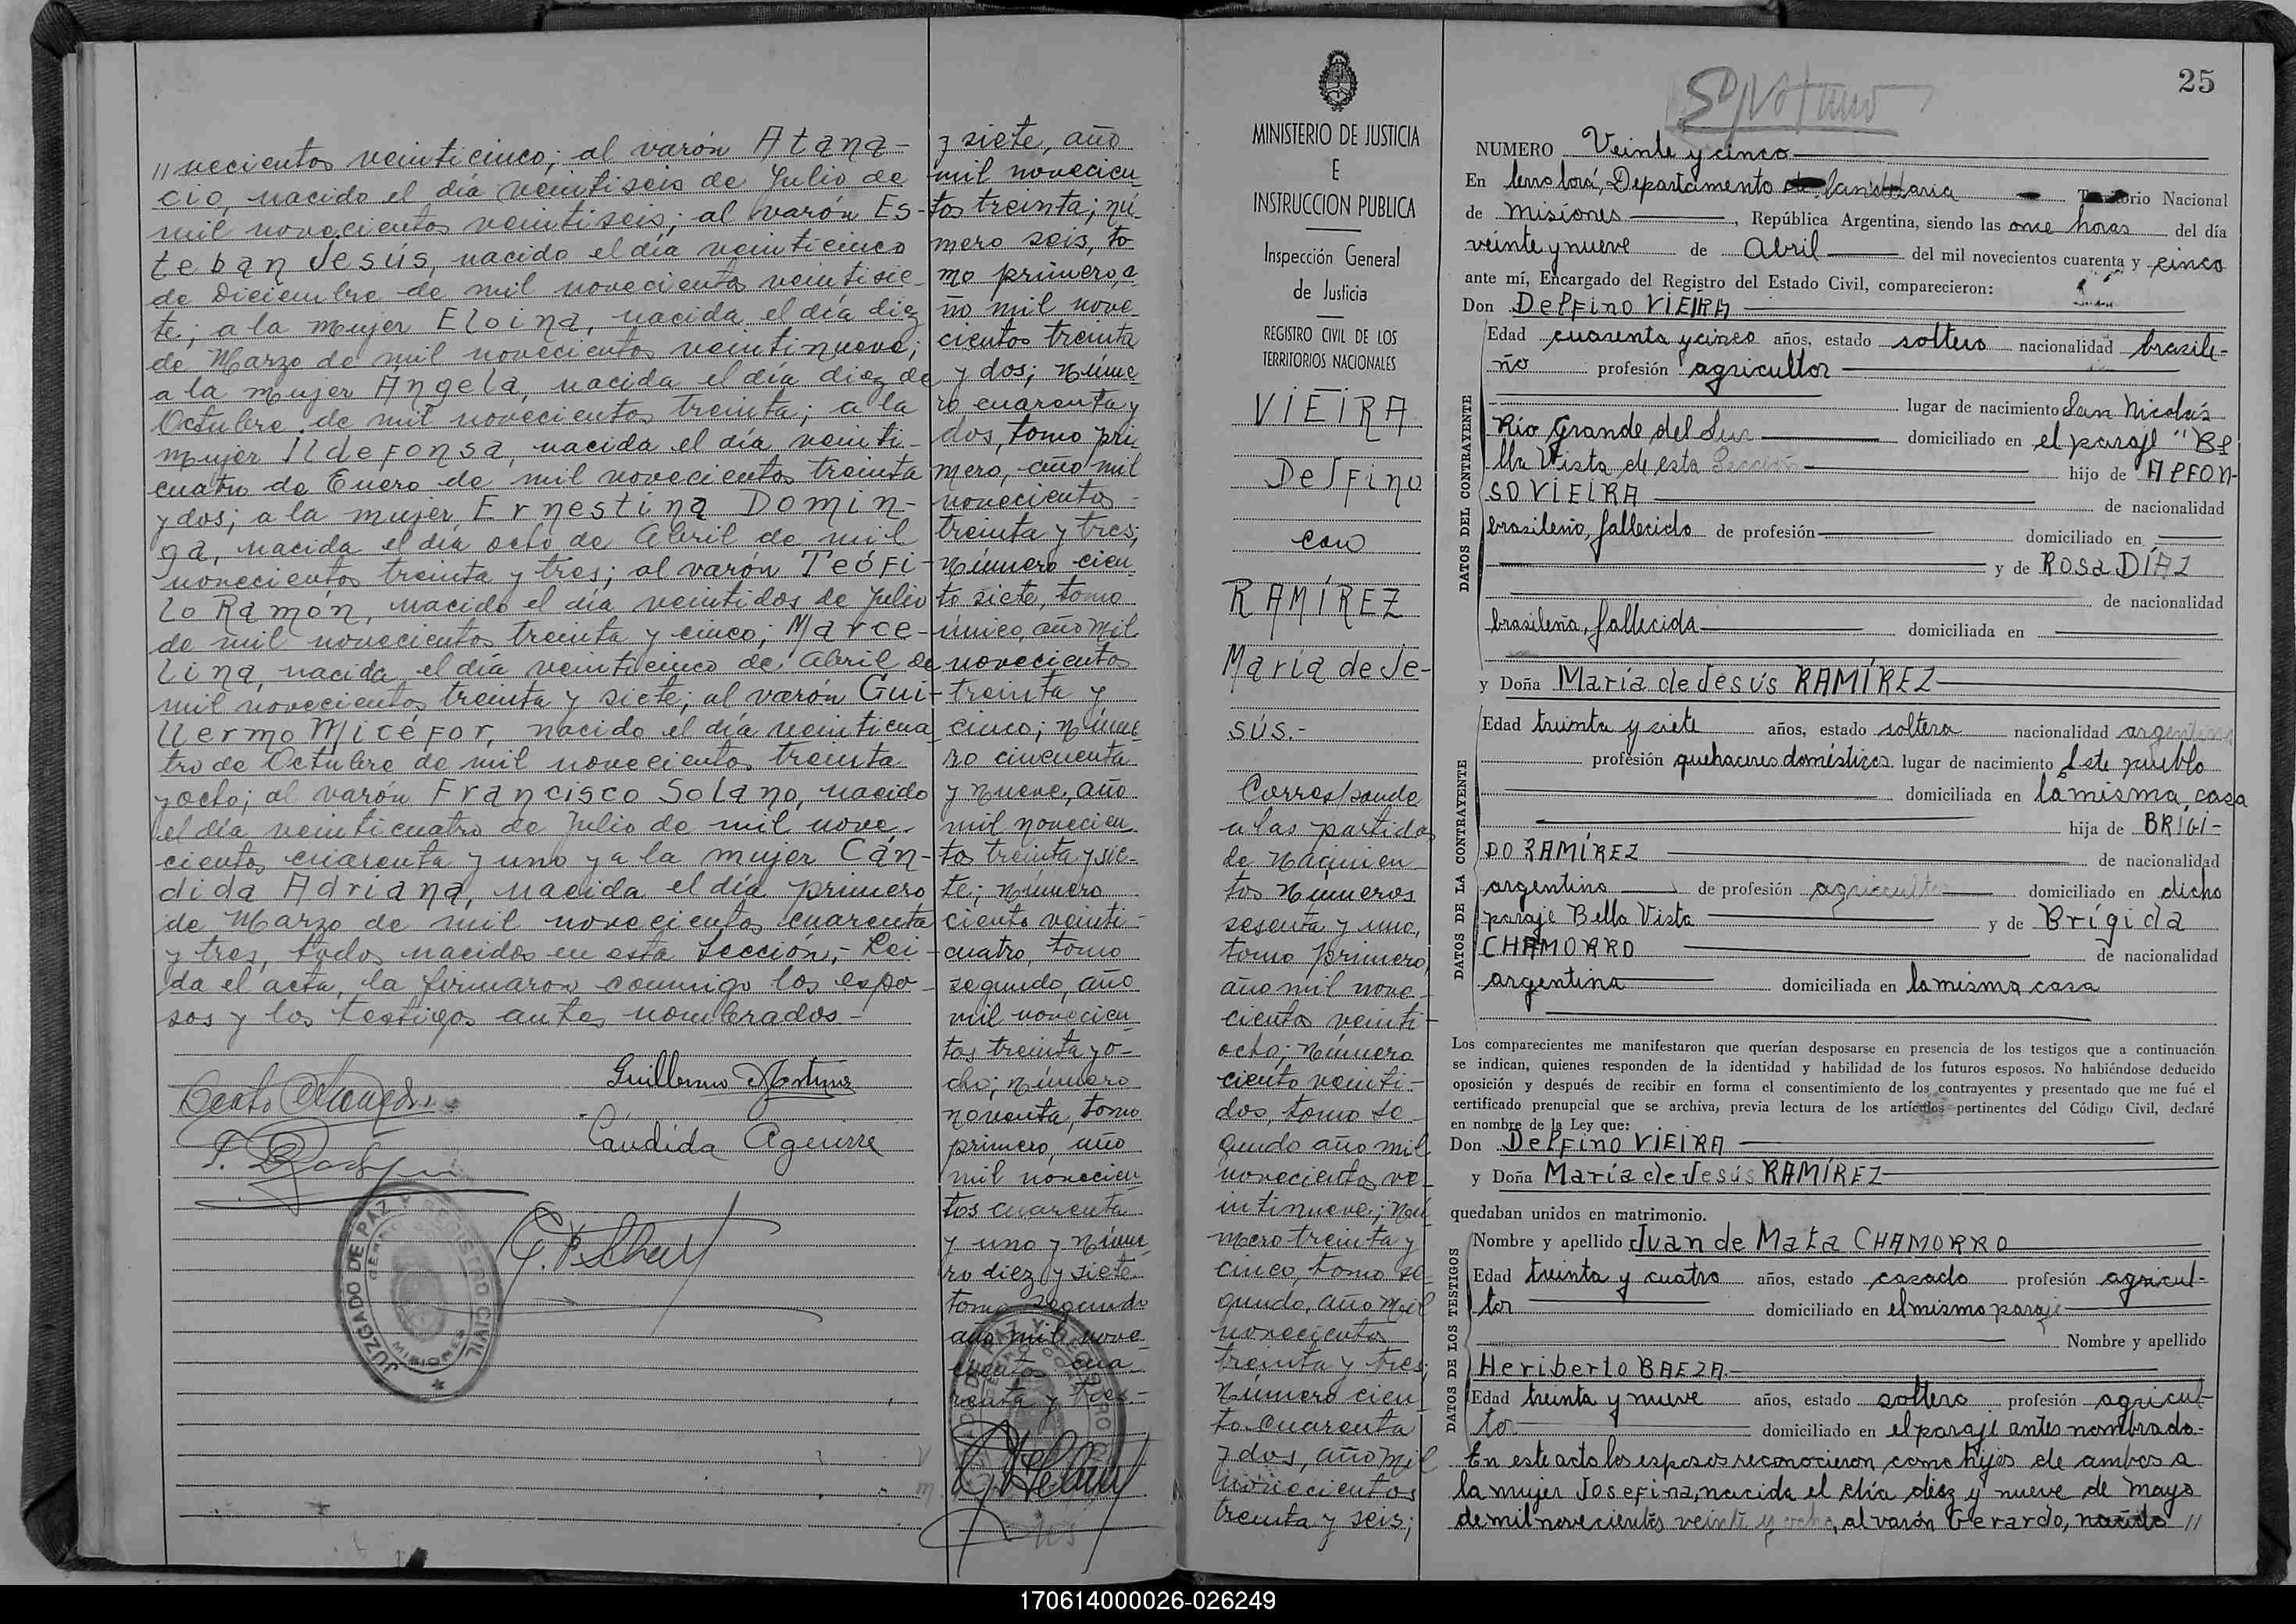 〃vecientos veinticinco; al varón Atana-
cio, nacido el día veintiseis de Julio de
mil novecientos veintiseis; al varón Es-
teban Jesús, nacido el día veinticinco
de Diciembre de mil novecientos veintisie-
te; a la mujer Eloina, nacida el día diez
de Marzo de mil novecientos veintinueve;
a la mujer Ángela, nacida el día diez de
Octubre de mil novecientos treinta; a la
mujer Ildefonsa, nacida el día veinti-
cuatro de Enero de mil novecientos treinta
y dos; a la mujer Ernestina Domin-
ga, nacida el día ocho de Abril de mil
novecientos treinta y tres; al varón Teófi-
lo Ramón, nacido el día veintidos de Julio
de mil novecientos treinta y cinco; Marce-
lina, nacida el día veinticinco de Abril de
mil novecientos treinta y siete; al varón Gui-
llermo Micéfor, nacido el día veinticua-
tro de Octubre de mil novecientos treinta
y ocho; al varón Francisco Solano, nacido
el día veinticuatro de Julio de mil nove-
cientos cuarenta y uno y a la mujer Cán-
dida Adriana, nacida el día primero
de Marzo de mil novecientos cuarenta
y tres, todos nacidos en esta Sección.- Leí-
da el acta, la firmaron conmigo los espo-
sos y los testigos antes nombrados.-
Guillermo Martinez
Candida Aguirre
JUZGADO DE PAZ Y REGISTRO CIVIL
MISIONES
y siete, año
mil novecien-
tos treinta; nú-
mero seis, to-
mo primero, a-
ño mil nove-
cientos treinta
y dos; núme-
ro cuarenta y
dos, tomo pri-
mero, año mil
novecientos
treinta y tres;
número cien-
to siete, tomo
único, año mil
novecientos
treinta y
cinco; núme-
ro cincuenta
y nueve, año
mil novecien-
tos treinta y sie-
te; número
ciento veinti-
cuatro, tomo
segundo, año
mil novecien-
tos treinta y o-
cho; número
noventa, tomo
primero, año
mil novecien-
tos cuarenta
y uno y núme-
ro diez y siete
tomo segundo
año mil nove-
cientos cua-
renta y tres.-
MINISTERIO DE JUSTICIA
E
INSTRUCCION PUBLICA
Inspección General
de Justicia
REGISTRO CIVIL DE LOS
TERRITORIOS NACIONALES
VIEIRA
Delfino
con
RAMÍREZ
María de Je-
sús.-
Corresponde
a las partidas
de nacimien-
tos números
sesenta y uno,
tomo primero,
año mil nove-
cientos veinti-
ocho; número
ciento veinti-
dos, tomo se-
gundo año mil
novecientos ve-
intinueve; nú-
mero treinta y
cinco, tomo se-
gundo, año mil
novecientos
treinta y tres;
número cien-
to cuarenta
y dos, año mil
novecientos
treinta y seis;
25
NUMERO Veinte y cinco
En Cerro Corá, Departamento Candelaria Territorio Nacional
de Misiones, República Argentina, siendo las once horas del día
veinte y nueve de Abril del mil novecientos cuarenta y cinco
ante mí, Encargado del Registro del Estado Civil, comparecieron:
Don Delfino VIEIRA
DATOS DEL CONTRAYENTE
Edad cuarenta y cinco años, estado soltero nacionalidad brasile-
ño profesión agricultor
lugar de nacimiento San Nicolás
Río Grande del Sur domiciliado en el paraje "Be
lla Vista de esta Sección hijo de Alfon-
so VIEIRA de nacionalidad
brasileño, fallecido de profesión domiciliado en
y de Rosa DÍAZ
de nacionalidad
brasileña, fallecida domiciliada en
y Doña María de Jesús RAMÍREZ
DATOS DE LA CONTRAYENTE
Edad treinta y siete años, estado soltera nacionalidad argentina
profesión quehaceres domésticos lugar de nacimiento Este pueblo
domiciliada en la misma casa
hija de BRIGI-
DO RAMÍREZ de nacionalidad
argentino de profesión agricultor domiciliado en dicho
paraje Bella Vista y de Brígida
CHAMORRO de nacionalidad
argentina domiciliada en la misma casa
Los comparecientes me manifestaron que querían desposarse en presencia de los testigos que a continuación
se indican, quienes responden de la identidad y habilidad de los futuros esposos. No habiéndose deducido
oposición y después de recibir en forma el consentimiento de los contrayentes y presentado que me fué el
certificado prenupcial que se archiva, previa lectura de los artículos pertinentes del Código Civil, declaré
en nombre de la Ley que:
Don Delfino VIEIRA
y Doña María de Jesús RAMÍREZ
quedaban unidos en matrimonio.
DATOS DE LOS TESTIGOS
Nombre y apellido Juan de Mata CHAMORRO
Edad treinta y cuatro años, estado casado profesión agricul-
tor domiciliado en el mismo paraje
Nombre y apellido
Heriberto BAEZA.
Edad treinta y nueve años, estado soltero profesión agricul-
tor domiciliado en el paraje antes nombrado.-
En este acto los esposos reconocieron como hijos de ambos a
la mujer Josefina, nacida el día diez y nueve de mayo
de mil novecientos veinte y ocho, al varón Gerardo, nacido 〃
170614000026-026249